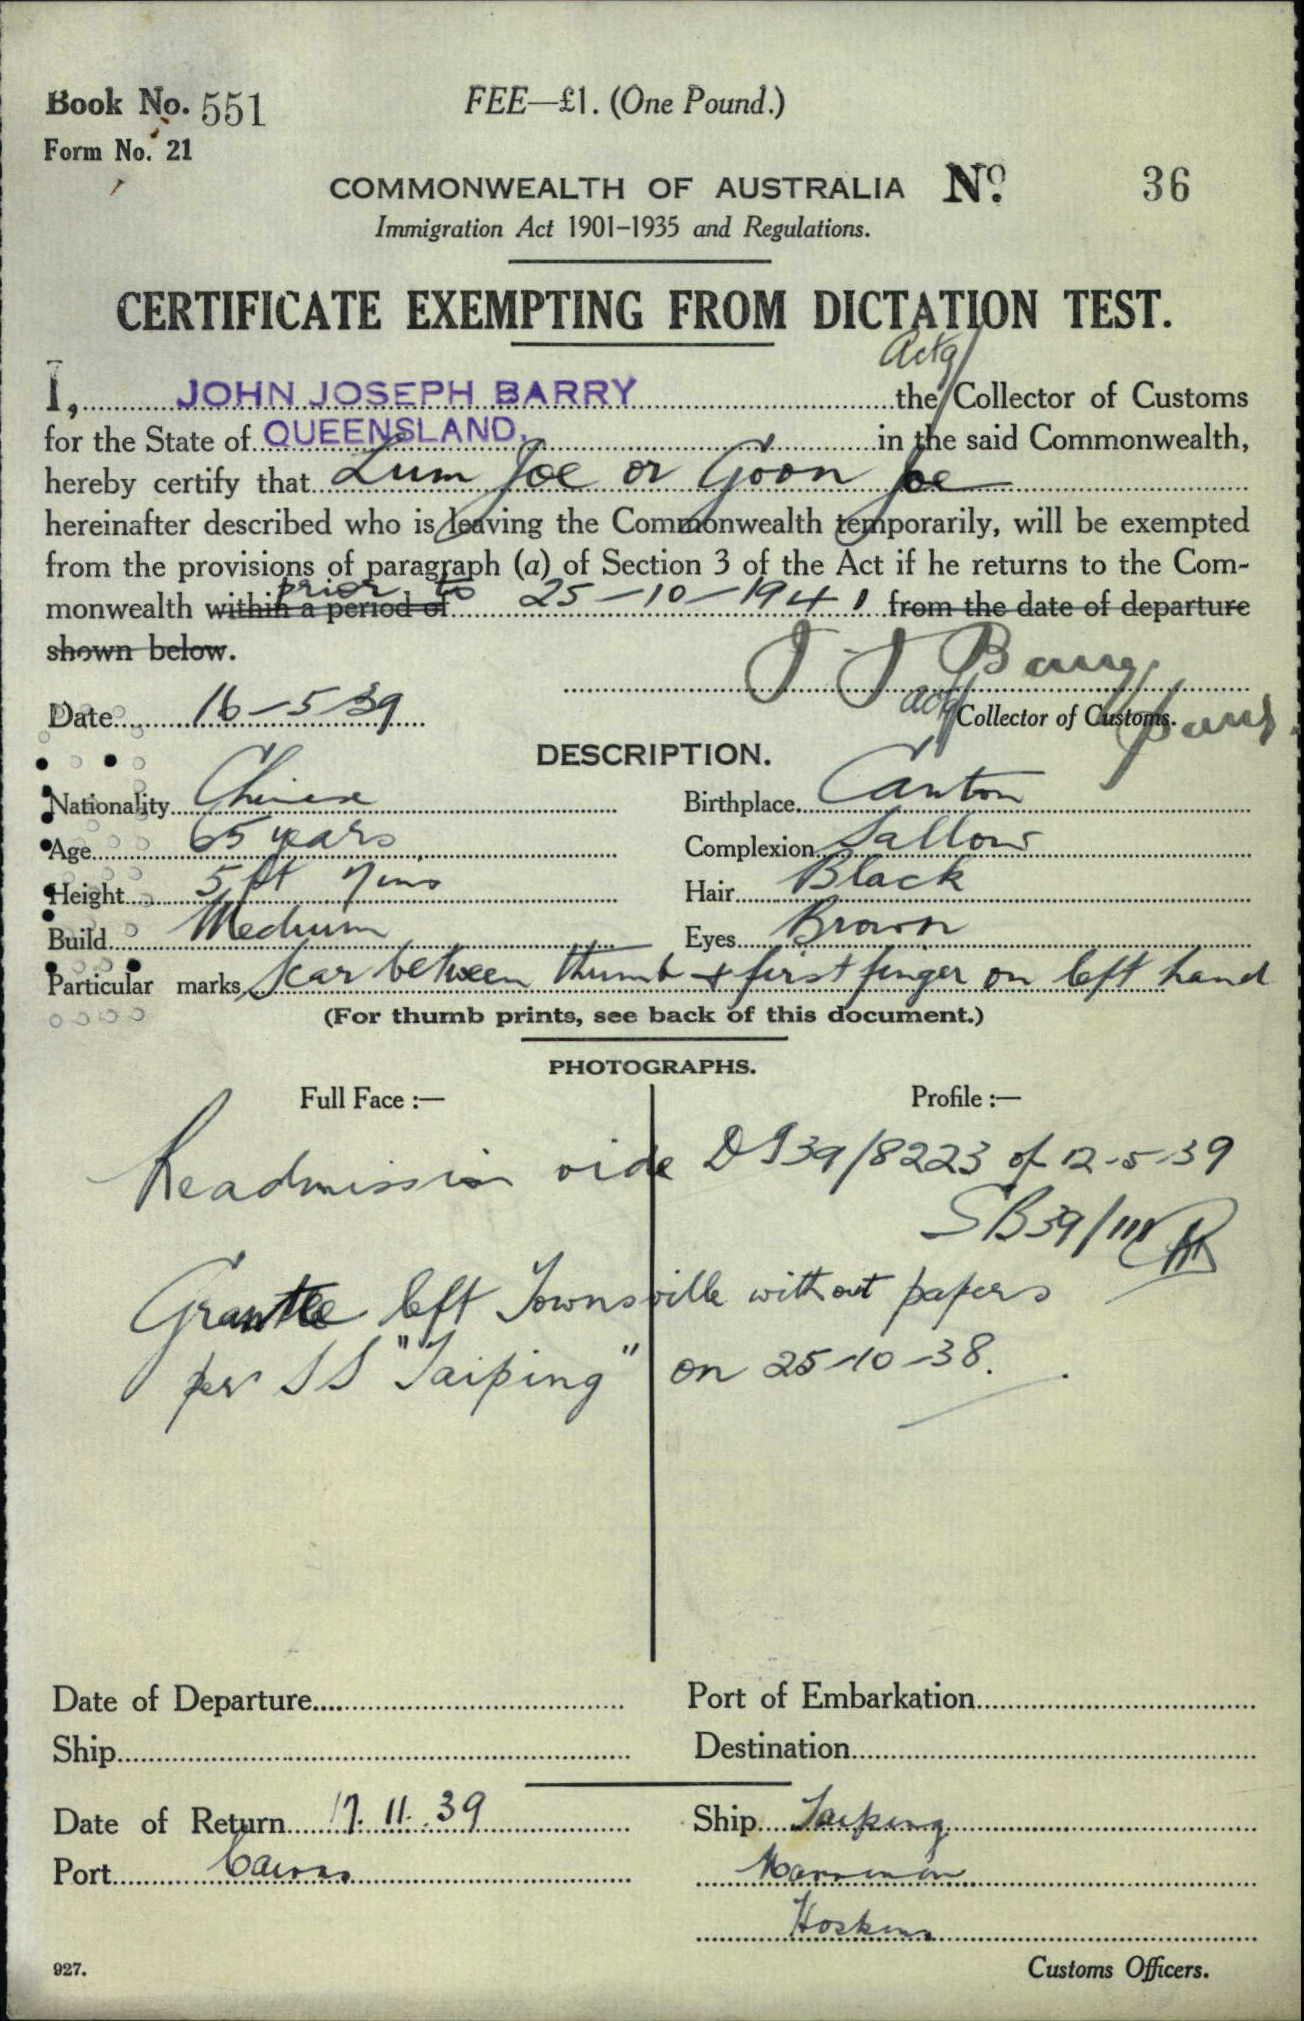 Book No. 551
FEE—£1. (One Pound.)
Form No. 21
COMMONWEALTH OF AUSTRALIA No. 36
Immigration Act 1901–1935 and Regulations.
CERTIFICATE EXEMPTING FROM DICTATION TEST.
Actg/
I, JOHN JOSEPH BARRY the Collector of Customs
for the State of QUEENSLAND, in the said Commonwealth,
hereby certify that Lum Joe or Goon Joe
hereinafter described who is leaving the Commonwealth temporarily, will be exempted
from the provisions of paragraph (a) of Section 3 of the Act if he returns to the Com-
prior to
monwealth within a period of 25-10-1941 from the date of departure
shown below.
J J Barry
Date 16-5-39
actg/ Collector of Customs.
DESCRIPTION.
Nationality Chinese Birthplace Canton
Age 65 years Complexion Sallow
Height 5 ft 7 ins Hair Black
Build Medium Eyes Brown
Particular marks Scar between thumb + first finger on left hand
(For thumb prints, see back of this document.)
PHOTOGRAPHS.
Full Face :— Profile :—
Readmission vide DI39/8223 of 12-5-39
SB39/111
Grantee left Townsville without papers
per SS "Taiping" on 25-10-38.
Date of Departure Port of Embarkation
Ship Destination
Date of Return 17.11.39 Ship Taiping
Port Cairns
Hoskins
927.
Customs Officers.